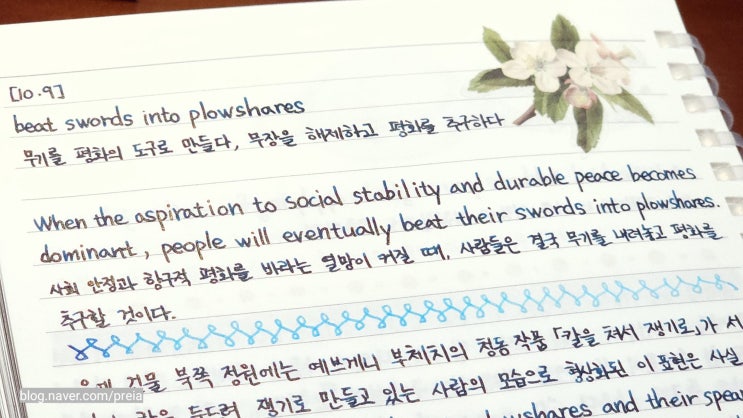 [10.9]
beat swords into plowshares
무기를 평화의 도구로 만들다, 무장을 해제하고 평화를 추구하다
When the aspiration to social stability and durable peace becomes
dominant, people will eventually beat their swords into plowshares.
사회 안정과 항구적 평화를 바라는 열망이 커질 때, 사람들은 결국 무기를 내려놓고 평화를
추구할 것이다.
건물 북쪽 정원에는 예브게니 부체치의 청동 작품 「칼을 쳐서 쟁기로」가 서
두드려 쟁기로 만들고 있는 사람의 모습으로 형상화된 이 표현은 사실
and their spea
blog.naver.com/preia